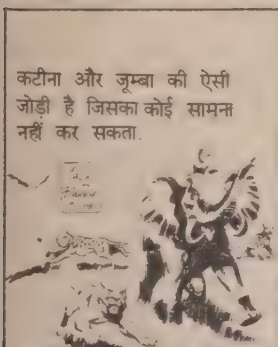 कटीना और जूम्बा की ऐसी
जोड़ी है जिसका कोई सामना
नहीं कर सकता.